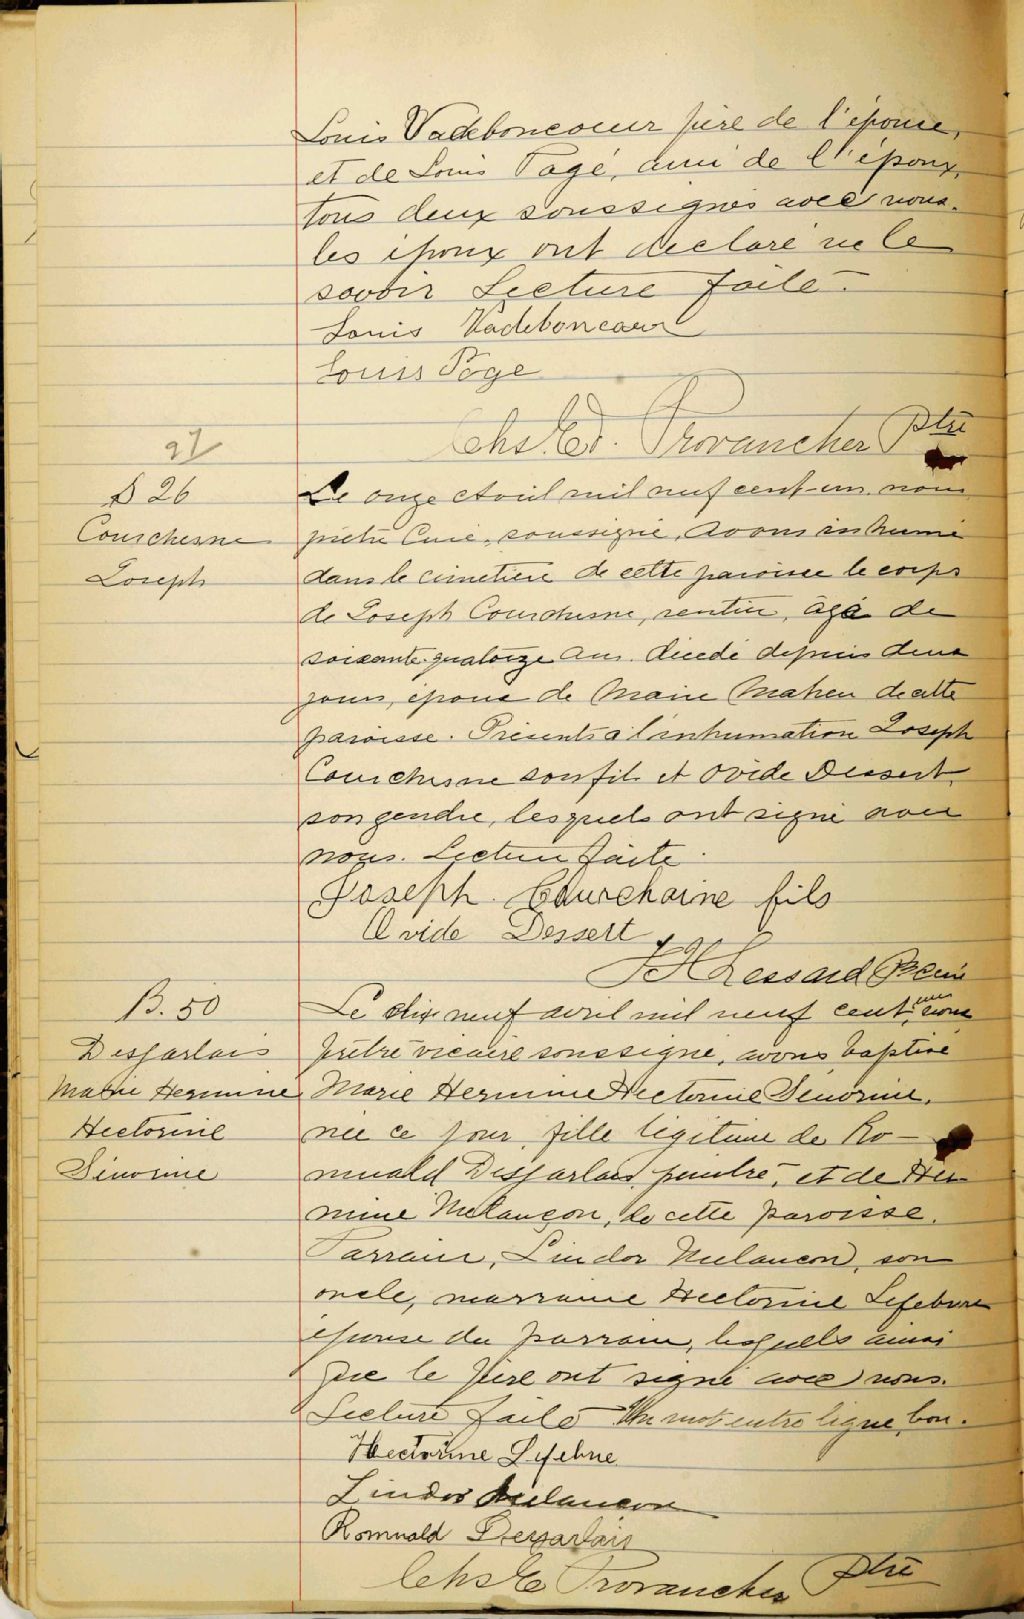 Louis Vadeboncoeur père de l'épouse,
et de Louis Pagé, ami de l'époux,
tous deux soussignés avec nous.
les époux ont déclaré ne le
savoir Lecture faite.
Louis Vadeboncoeur
Louis Page
Chs. Ed. Provancher Ptre
27
S 26
Courchesne
Joseph
Le onze Avril mil neuf cent-un nous
prêtre Curé, soussigné, avons inhumé
dans le cimetière de cette paroisse le corps
de Joseph Courchesne, rentier, âgé de
soixante-quatorze ans. décédé depuis deux
jours, époux de Marie Maheu de cette
paroisse. Présents à l'inhumation Joseph
Courchesne son fils et Ovide Dessert,
son gendre, lesquels ont signé avec
nous. Lecture faite.
Joseph Courchaine fils
Ovide Dessert
Lessard Ptre Curé
B. 50
Desjarlais
Marie Hermine
Hectorine
Sénorine
Le dix neuf avril mil neuf cent, un nous
prêtre vicaire soussigné, avons baptisé
Marie Hermine Hectorine Sénorine,
née ce jour, fille légitime de Ro-
muald Desjarlais, peintre, et de Her-
mine Melançon, de cette paroisse.
Parrain, Lindor Melancon, son
oncle, marraine Hectorine Lefebvre
épouse du parrain, lesquels ainsi
que le père ont signé avec nous.
Lecture faite Un mot entre ligne, bon.
Hectorine Lefebvre
Lindor Melancon
Romuald Desjarlais
Chs E Provancher Ptre